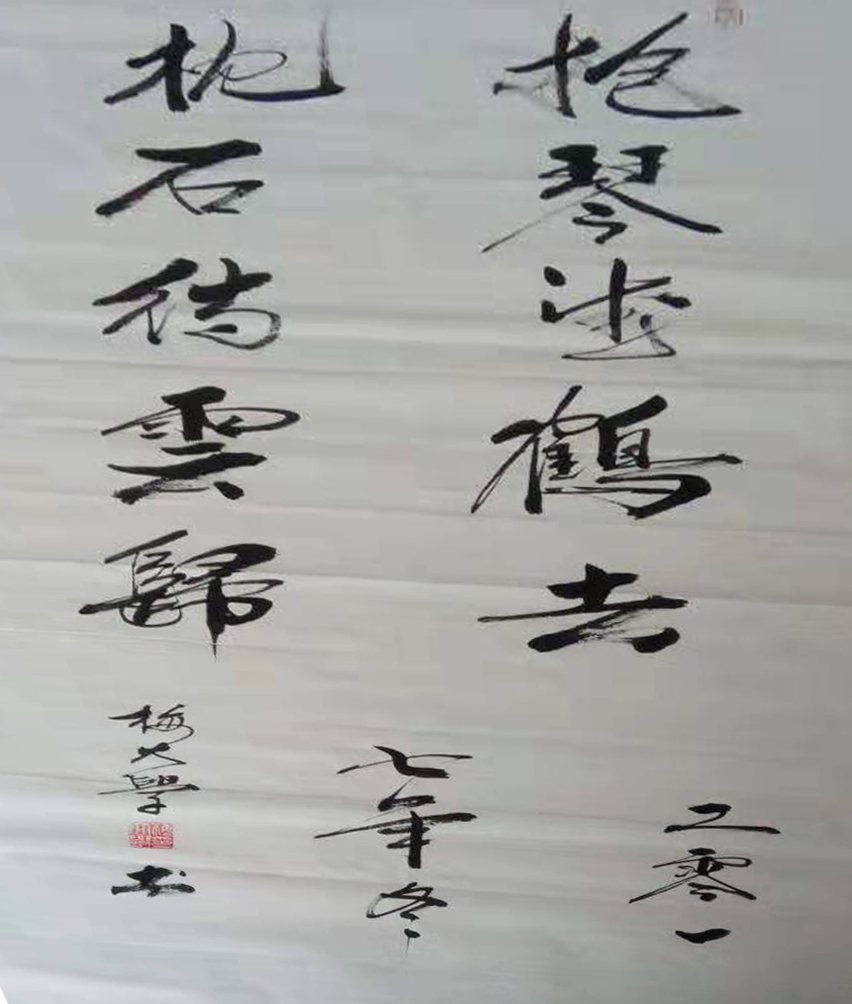 抱琴鶴去
枕石待雲歸
二零一
七年冬
梅學书